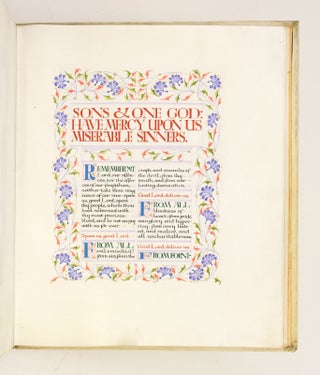 SONS & ONE GOD:
HAVE MERCY UPON US
MISERABLE SINNERS.
REMEMBER NT
Lord, our offen-
ces, nor the offen-
ces of our forefathers,
neither take thou ven-
geance of our sins: spare
us, good Lord, spare
thy people, whom thou
hast redeemed with
thy most precious
blood, and be not angry
with us for ever.
Spare us, good Lord.
FROM ALL
evil & mischief;
from sin, from the
crafts and assaults of
the devil; from thy
wrath, and from ever-
lasting damnation,
Good Lord deliver us.
FROM ALL
blindness of
heart; from pride,
vainglory, and hypoc-
risy; from envy, hat-
red, and malice, and
all uncharitableness,
Good Lord deliver us.
FROM FORNI-